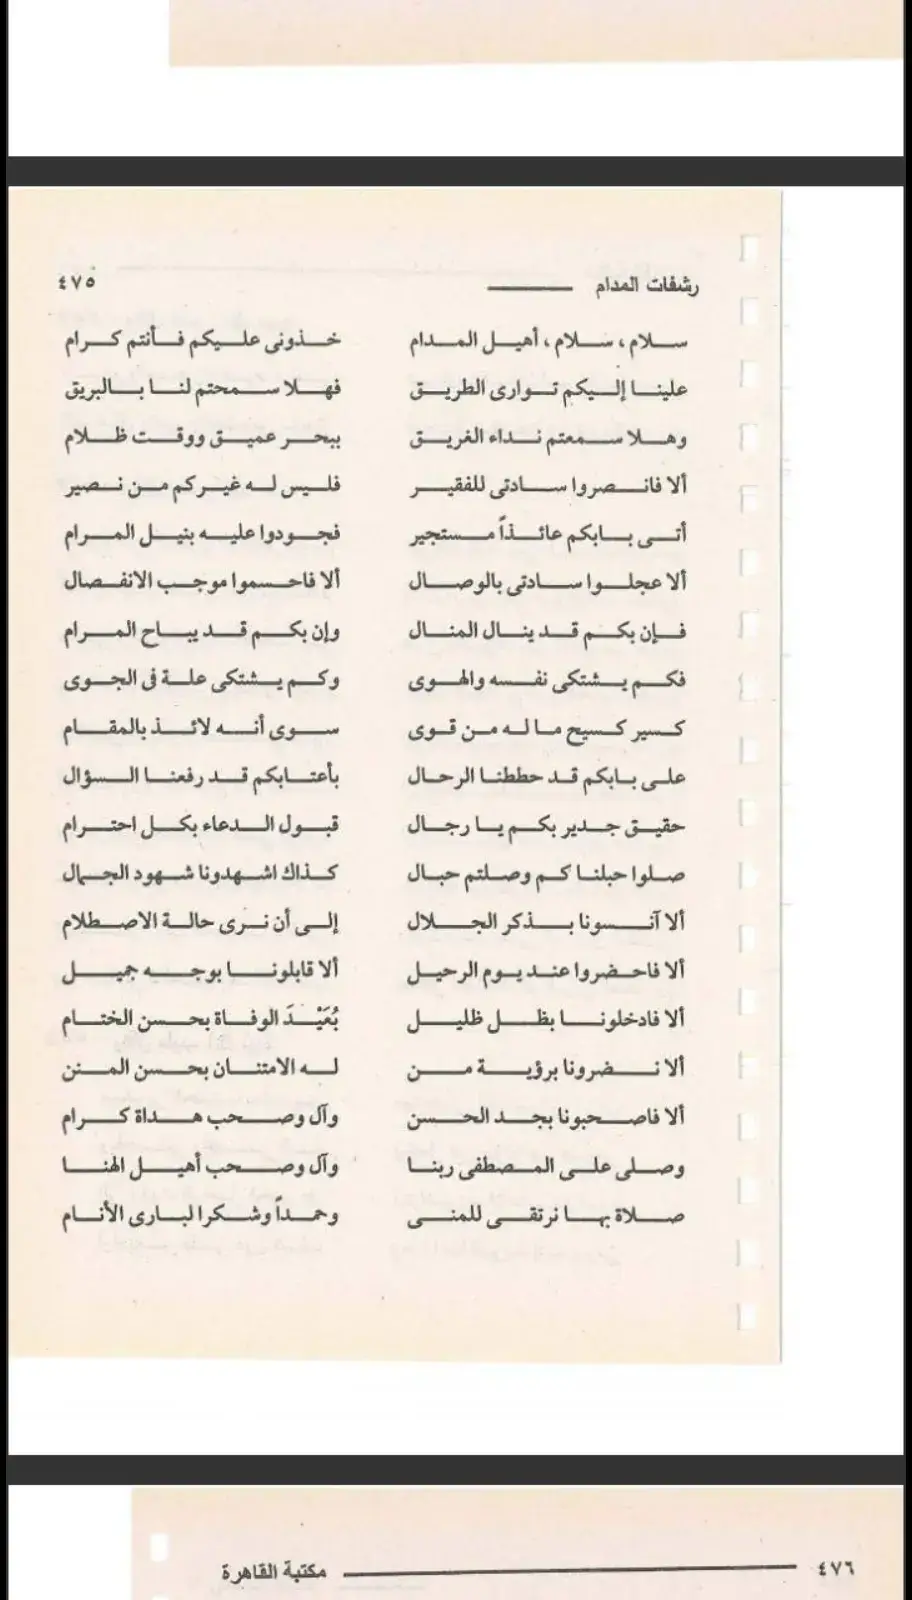 رشفات المدام ٤٧٥
سلام، سلام، أهيل المدام خذونى عليكم فأنتم كرام
علينا إليكم توارى الطريق فهلا سمحتم لنا بالبريق
وهلا سمعتم نداء الغريق ببحر عميق ووقت ظلام
ألا فانصروا سادتى للفقير فليس له غيركم من نصير
أتى بابكم عائذاً مستجير فجودوا عليه بنيل المرام
ألا عجلوا سادتى بالوصال ألا فاحسموا موجب الانفصال
فإن بكم قد ينال المنال وإن بكم قد يباح المرام
فكم يشتكى نفسه والهوى وكم يشتكى علة فى الجوى
كسير كسيح ما له من قوى سوى أنه لائذ بالمقام
على بابكم قد حططنا الرحال بأعتابكم قد رفعنا السؤال
حقيق جدير بكم يا رجال قبول الدعاء بكل احترام
صلوا حبلنا كم وصلتم حبال كذاك اشهدونا شهود الجمال
ألا آنسونا بذكر الجلال إلى أن نرى حالة الاصطلام
ألا فاحضروا عند يوم الرحيل ألا قابلونا بوجه جميل
ألا فادخلونا بظل ظليل بُعَيْدَ الوفاة بحسن الختام
ألا نضرونا برؤية من له الامتنان بحسن المنن
ألا فاصحبونا بجد الحسن وآل وصحب هداة كرام
وصلى على المصطفى ربنا وآل وصحب أهيل الهنا
صلاة بها نرتقى للمنى وحمداً وشكرا لبارى الأنام
٤٧٦ مكتبة القاهرة